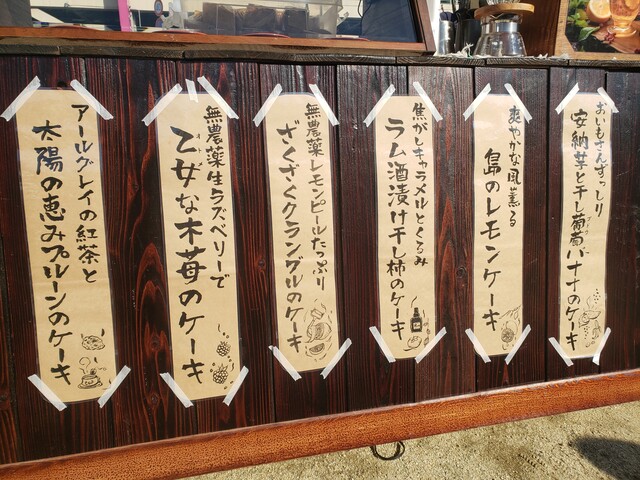 おいもさんずっしり
安納芋と干し葡萄バナナのケーキ
爽やかな風薫る
島のレモンケーキ
焦がしキャラメルとくるみ
ラム酒漬け干し柿のケーキ
無農薬レモンピールたっぷり
ざくざくクランブルのケーキ
無農薬生ラズベリーで
乙女な木苺のケーキ
アールグレイの紅茶と
太陽の恵みプルーンのケーキ